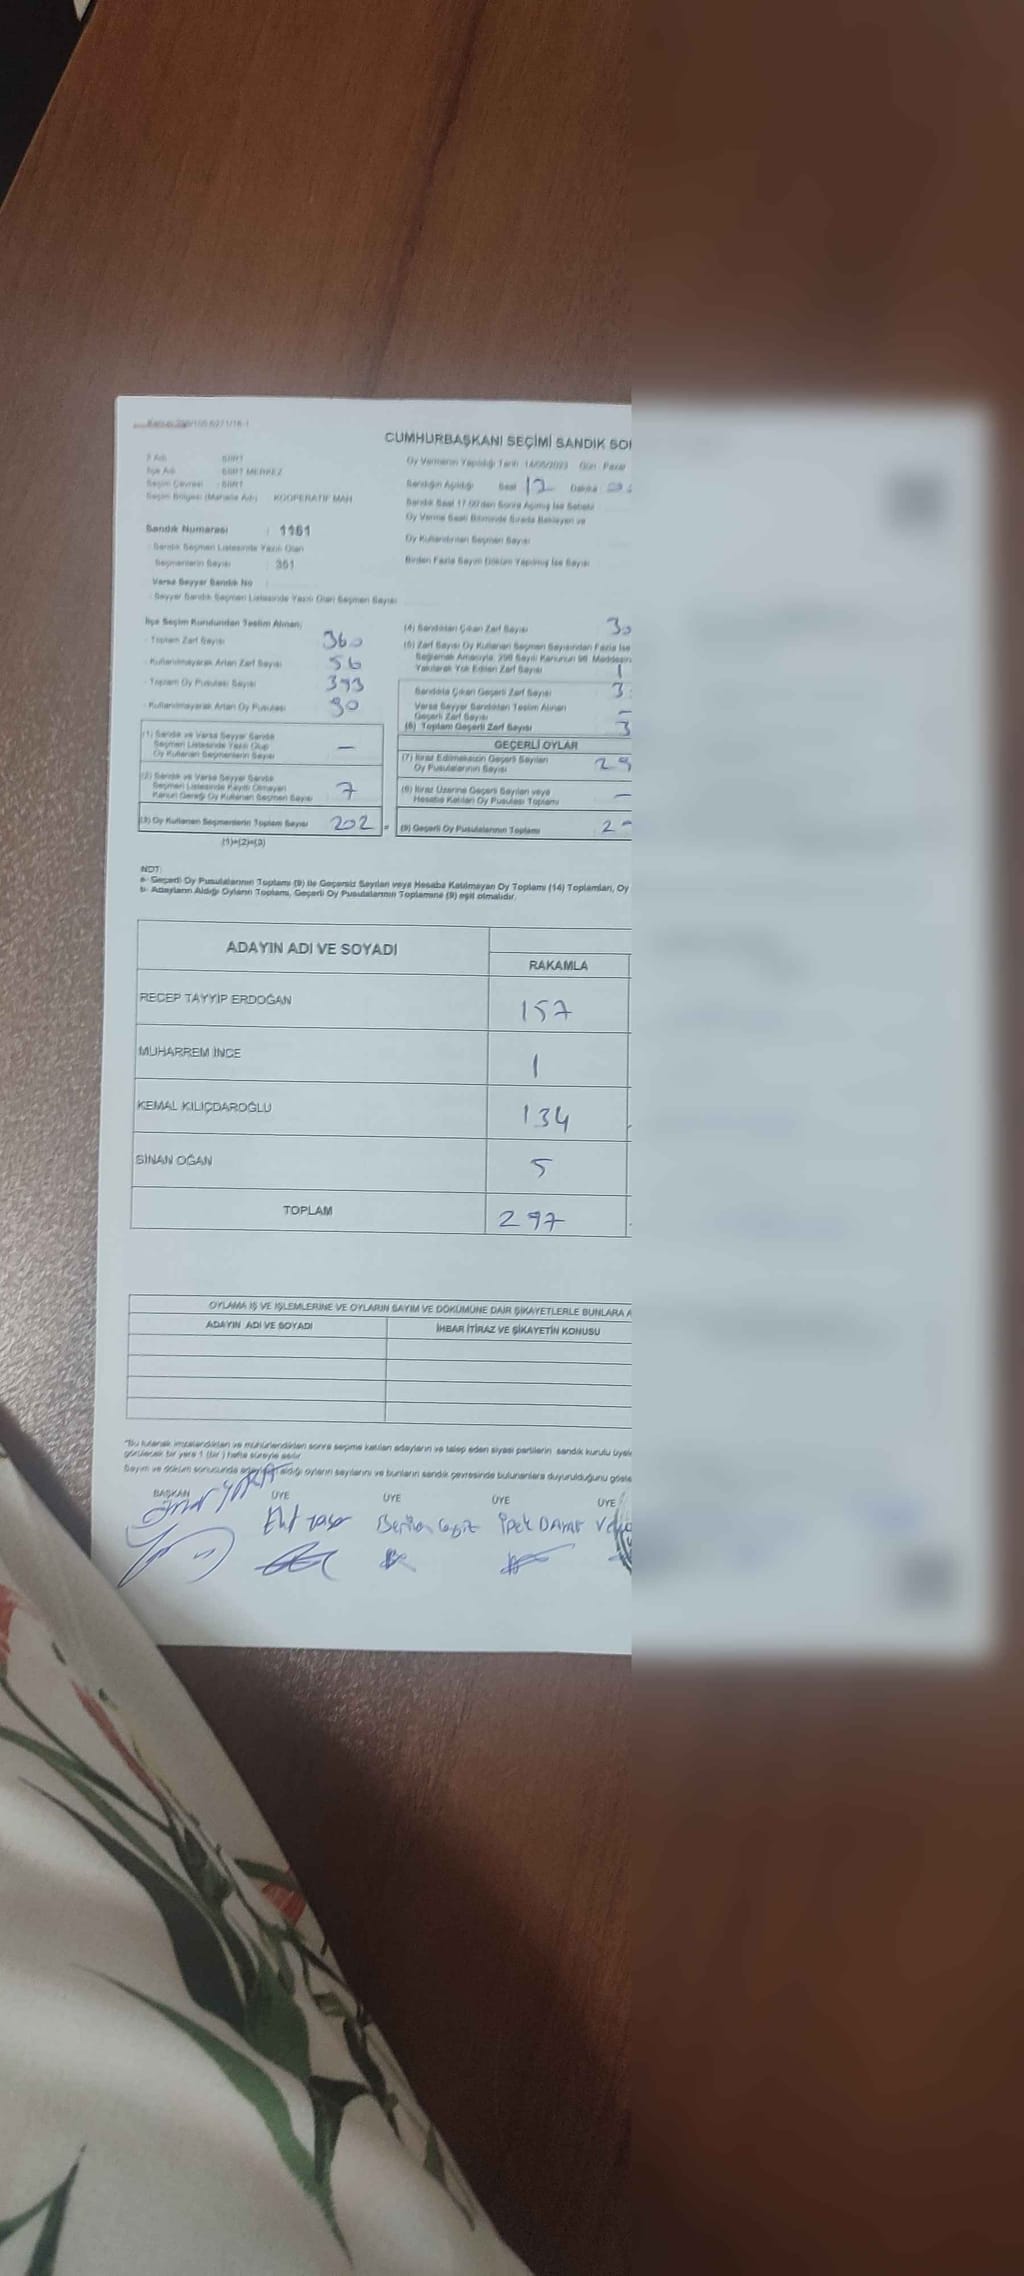 CUMHURBAŞKANI SEÇİMİ SANDIK
İl Adı : SİİRT
Oy Vermenin Yapıldığı Tarih : 14/05/2023 Gün : Pazar
İlçe Adı : SİİRT MERKEZ
Seçim Çevresi : SİİRT
Sandığın Açıldığı Saat 17 Dakika
Seçim Bölgesi (Mahalle Adı) : KOOPERATİF MAH
Sandık Saat 17.00'den Sonra Açılmış İse Sebebi
Oy Verme Saati Bitiminde Sırada Bekleyen ve
Oy Kullandırılan Seçmen Sayısı
Birden Fazla Sayım Döküm Yapılmış İse Sayısı
Sandık Numarası : 1161
- Sandık Seçmen Listesinde Yazılı Olan
Seçmenlerin Sayısı : 351
Varsa Seyyar Sandık No
- Seyyar Sandık Seçmen Listesinde Yazılı Olan Seçmen Sayısı
İlçe Seçim Kurulundan Teslim Alınan;
- Toplam Zarf Sayısı 360
- Kullanılmayarak Artan Zarf Sayısı 56
- Toplam Oy Pusulası Sayısı 393
- Kullanılmayarak Artan Oy Pusulası 90
(1) Sandık ve Varsa Seyyar Sandık
Seçmen Listesinde Yazılı Olup
Oy Kullanan Seçmenlerin Sayısı —
(2) Sandık ve Varsa Seyyar Sandık
Seçmen Listesinde Kayıtlı Olmayan
Kanun Gereği Oy Kullanan Seçmen Sayısı 7
(3) Oy Kullanan Seçmenlerin Toplam Sayısı 202 =
(1)+(2)=(3)
(4) Sandıktan Çıkan Zarf Sayısı
(5) Zarf Sayısı Oy Kullanan Seçmen Sayısından Fazla İse
Sağlamak Amacıyla, 298 Sayılı Kanunun 98. Maddesin
Yakılarak Yok Edilen Zarf Sayısı
Sandıkta Çıkan Geçerli Zarf Sayısı
Varsa Seyyar Sandıktan Teslim Alınan
Geçerli Zarf Sayısı —
(6) Toplam Geçerli Zarf Sayısı
GEÇERLİ OYLAR
(7) İtiraz Edilmeksizin Geçerli Sayılan
Oy Pusulalarının Sayısı
(8) İtiraz Üzerine Geçerli Sayılan veya
Hesaba Katılan Oy Pusulası Toplamı —
(9) Geçerli Oy Pusulalarının Toplamı
NOT:
a- Geçerli Oy Pusulalarının Toplamı (9) ile Geçersiz Sayılan veya Hesaba Katılmayan Oy Toplamı (14) Toplamları, Oy
b- Adayların Aldığı Oyların Toplamı, Geçerli Oy Pusulalarının Toplamına (9) eşit olmalıdır.
ADAYIN ADI VE SOYADI
RAKAMLA
RECEP TAYYİP ERDOĞAN 157
MUHARREM İNCE 1
KEMAL KILIÇDAROĞLU 134
SİNAN OĞAN 5
TOPLAM 297
OYLAMA İŞ VE İŞLEMLERİNE VE OYLARIN SAYIM VE DÖKÜMÜNE DAİR ŞİKAYETLERLE BUNLARA
ADAYIN ADI VE SOYADI İHBAR İTİRAZ VE ŞİKAYETİN KONUSU
*Bu tutanak imzalandıktan ve mühürlendikten sonra seçime katılan adayların ve talep eden siyasi partilerin sandık kurulu
görülecek bir yere 1 (bir) hafta süreyle asılır.
Sayım ve döküm sonucunda aldığı oyların sayılarını ve bunların sandık çevresinde bulunanlara duyurulduğunu
BAŞKAN ÜYE ÜYE ÜYE ÜYE
İpek